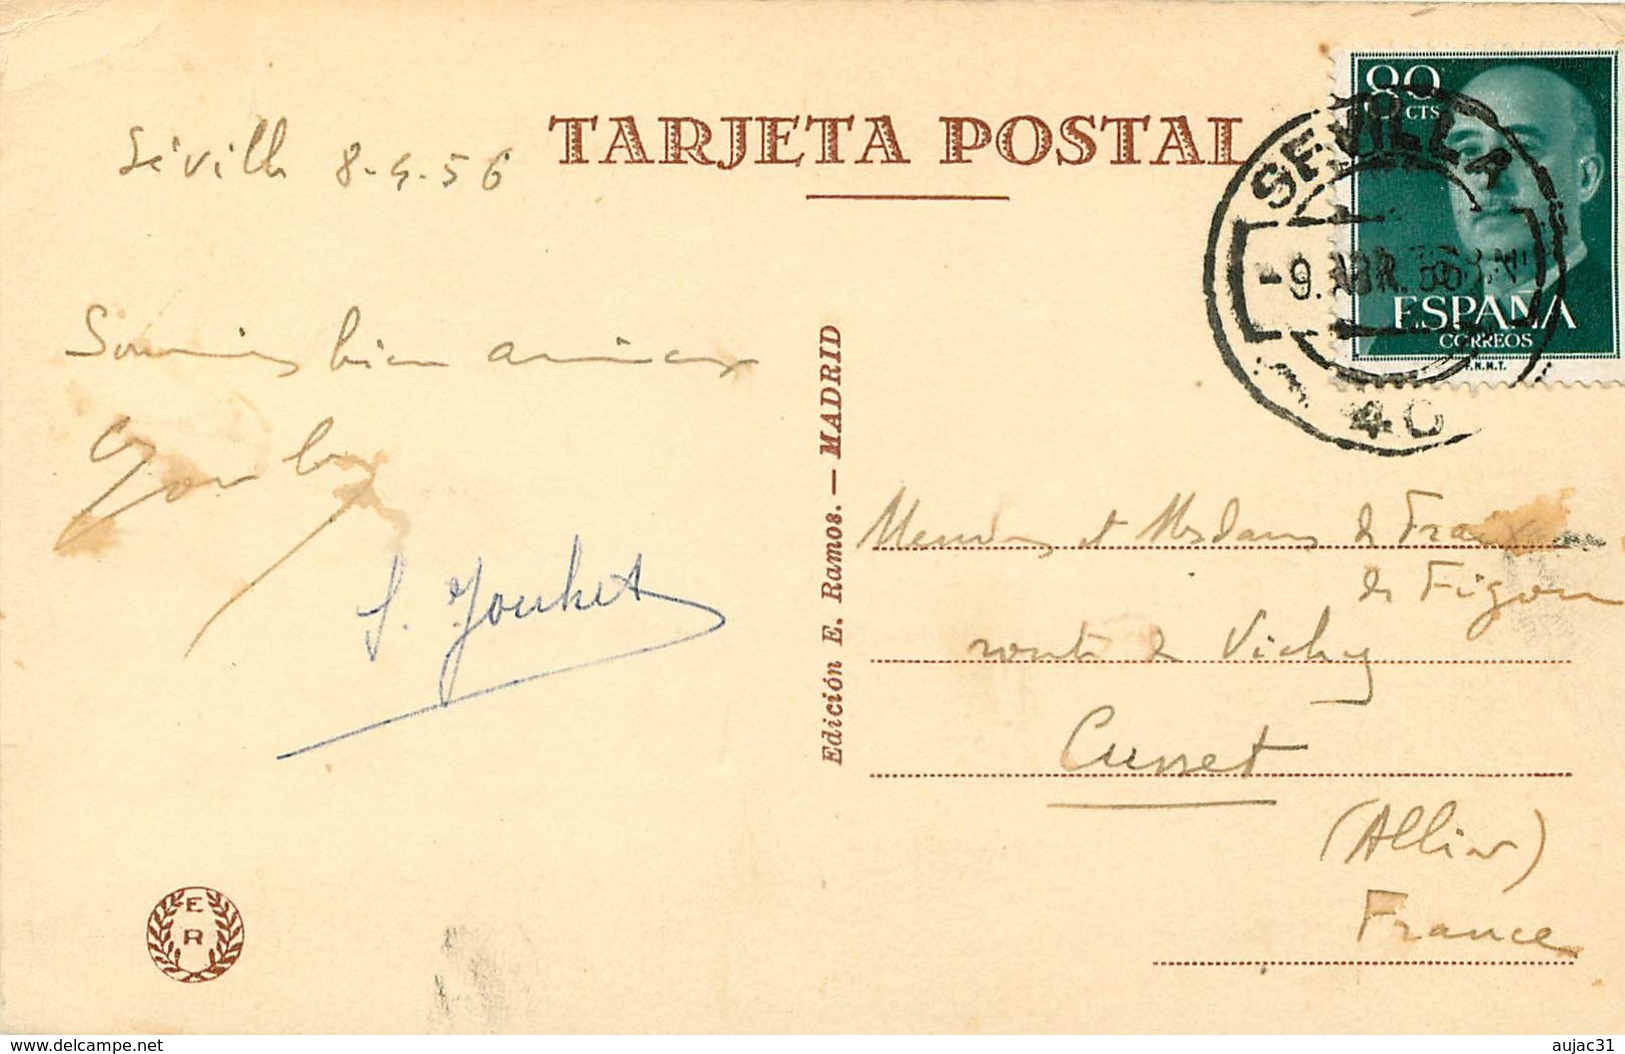 TARJETA POSTAL
Séville 8-4-56
80
CTS
SEVILLA
-9.ABR.56
ESPAÑA
CORREOS
F.N.M.T.
40
Souvenirs bien amicaux
Edición E. Ramos. — MADRID
Messieurs et Mesdames de
de Figon
route de Vichy
Cusset
(Allier)
France
E
R
www.delcampe.net
aujac31